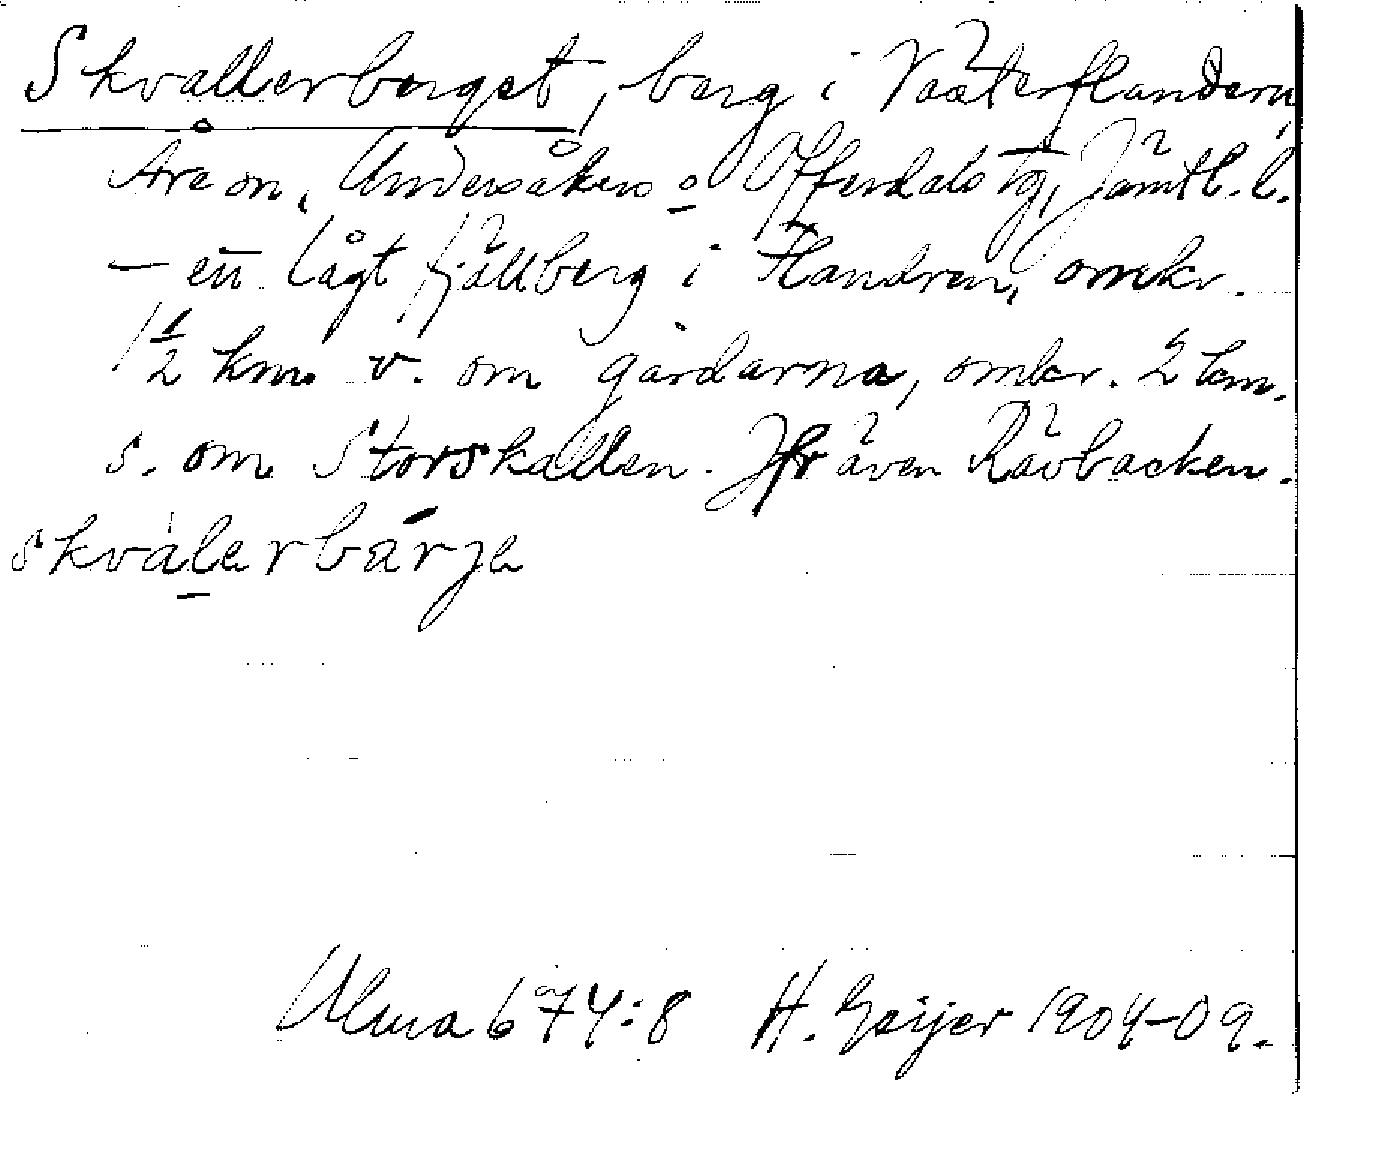 Skvallerberget, berg i Västerflandern,
Åre sn, Undersåkers o Offerdals tg, Jämtl. l.
— ett lågt fjällberg i Flandren, omkr.
1 1/2 km. v. om gårdarna, omkr. 2 km.
s. om Storskallen. Jfr även Rävbacken.
skvàlerbärje
Ulma 674:8 H. Geijer 1904-09.